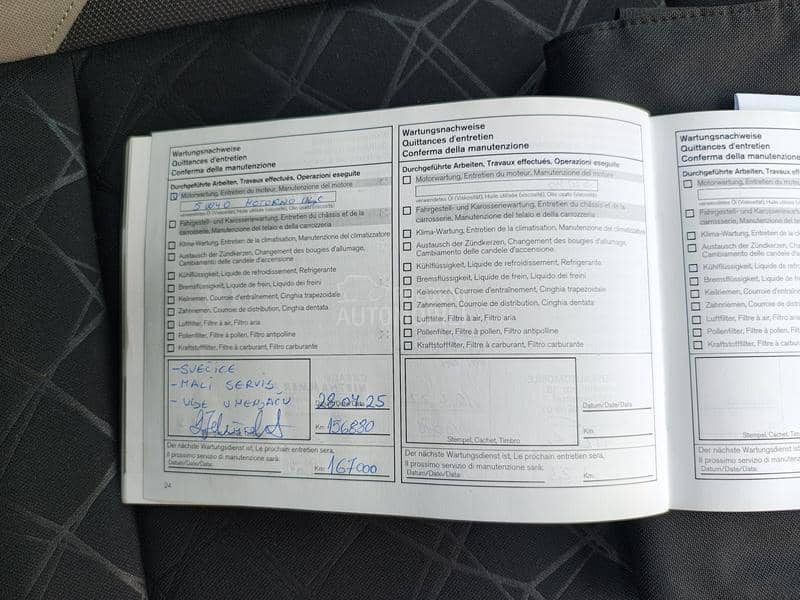 Wartungsnachweise
Quittances d'entretien
Conferma della manutenzione
Durchgeführte Arbeiten, Travaux effectués, Operazioni eseguite
Motorwartung, Entretien du moteur, Manutenzione del motore
5W40 MOTORNO
verwendetes Öl (Viskosität), Huile utilisée (viscosité), Olio usato (viscosità)
Fahrgestell- und Karosseriewartung, Entretien du châssis et de la
carrosserie, Manutenzione del telaio e della carrozzeria
Klima-Wartung, Entretien de la climatisation, Manutenzione del climatizzatore
Austausch der Zündkerzen, Changement des bougies d'allumage,
Cambiamento delle candele d'accensione
Kühlflüssigkeit, Liquide de refroidissement, Refrigerante
Bremsflüssigkeit, Liquide de frein, Liquido dei freini
Keilriemen, Courroie d'entraînement, Cinghia trapezoidale
Zahnriemen, Courroie de distribution, Cinghia dentata
Luftfilter, Filtre à air, Filtro aria
Pollenfilter, Filtre à pollen, Filtro antipolline
Kraftstofffilter, Filtre à carburant, Filtro carburante
-SVEĆICE
-MALI SERVIS
28.07.25
Km 156830
Der nächste Wartungsdienst ist, Le prochain entretien sera,
Il prossimo servizio di manutenzione sarà:
Datum/Date/Data:
Km 167000
24
Wartungsnachweise
Quittances d'entretien
Conferma della manutenzione
Durchgeführte Arbeiten, Travaux effectués, Operazioni eseguite
Motorwartung, Entretien du moteur, Manutenzione del motore
verwendetes Öl (Viskosität), Huile utilisée (viscosité), Olio usato (viscosità)
Fahrgestell- und Karosseriewartung, Entretien du châssis et de la
carrosserie, Manutenzione del telaio e della carrozzeria
Klima-Wartung, Entretien de la climatisation, Manutenzione del climatizzatore
Austausch der Zündkerzen, Changement des bougies d'allumage,
Cambiamento delle candele d'accensione
Kühlflüssigkeit, Liquide de refroidissement, Refrigerante
Bremsflüssigkeit, Liquide de frein, Liquido dei freini
Keilriemen, Courroie d'entraînement, Cinghia trapezoidale
Zahnriemen, Courroie de distribution, Cinghia dentata
Luftfilter, Filtre à air, Filtro aria
Pollenfilter, Filtre à pollen, Filtro antipolline
Kraftstofffilter, Filtre à carburant, Filtro carburante
Stempel, Cachet, Timbro
Datum/Date/Data:
Km:
Der nächste Wartungsdienst ist, Le prochain entretien sera,
Il prossimo servizio di manutenzione sarà:
Datum/Date/Data:
Km:
Wartungsnachweise
Quittances d'entretien
Conferma della manutenzione
Durchgeführte Arbeiten, Travaux effect
Motorwartung, Entretien du mote
verwendetes Öl (Viskosität), Huile utilisée
Fahrgestell- und Karosseriewartu
carrosserie, Manutenzione del tel
Klima-Wartung, Entretien de la cl
Austausch der Zündkerzen, Chan
Cambiamento delle candele d'acc
Kühlflüssigkeit, Liquide de refroid
Bremsflüssigkeit, Liquide de frein,
Keilriemen, Courroie d'entraîneme
Zahnriemen, Courroie de distribut
Luftfilter, Filtre à air, Filtro aria
Pollenfilter, Filtre à pollen, Filtro a
Kraftstofffilter, Filtre à carburant, F
Stempel, Cachet, Timbro
Der nächste Wartungsdienst ist, Le pro
Il prossimo servizio di manutenzione sa
Datum/Date/Data: